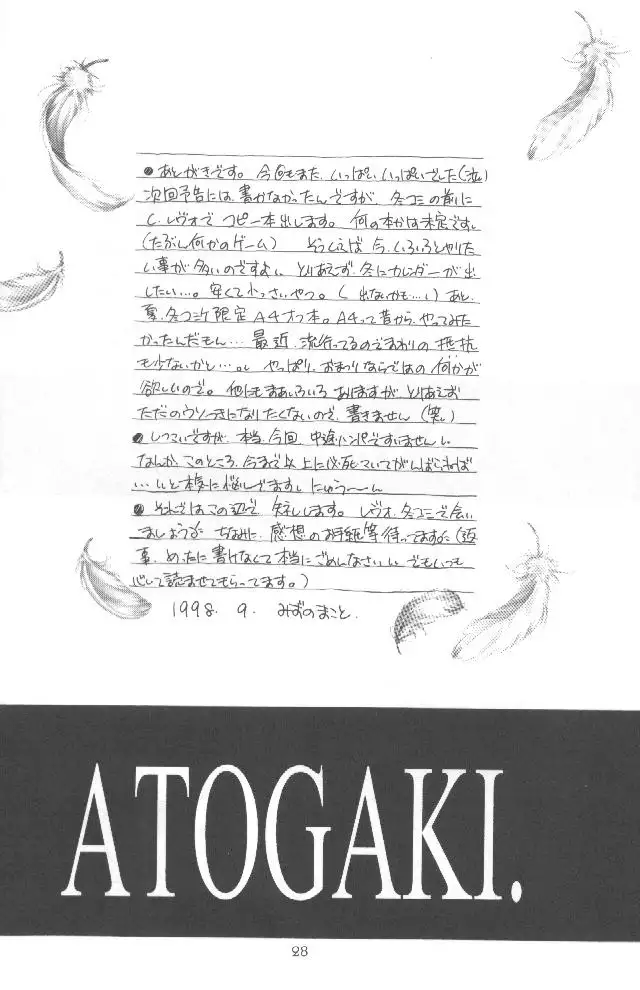 ●あとがきです。今回もまた、いっぱいいっぱいでした(泣)
次回予告には、書かなかったんですが、冬コミの前に
C.レヴォで コピー本出します。何の本かは未定です。
(たぶん何かのゲーム) そういえば 今、いろいろとやりた
い事が多いのですよ。とりあえず、冬にカレンダーが出
したい…。安くて小っさいやつ。(出ないかも…。)あと、
夏、冬コミケ限定A4オフ本。A4って昔から、やってみた
かったんだもん…最近、流行ってるのでまわりの抵抗
も少ないかと…。やっぱり、おまつりならではの何かが
欲しいので。他にもまあいろいろありますが、とりあえず
ただのウソつきになりたくないので、書きません(笑)
●しつこいですが、本当、今回、中途ハンパですいません。
なんか、このところ、今まで以上に必死こいてがんばらねば
…と本気に悩んでます。にゅう〜〜ん
●それではこの辺で、失礼します。レヴォ、冬コミで会い
ましょう。ちなみに、感想のお手紙等待ってます。(返
事、めったに書けなくて本当にごめんなさい。でもいつも
心して読ませてもらってます。)
1998. 9. みずのまこと.
ATOGAKI.
28